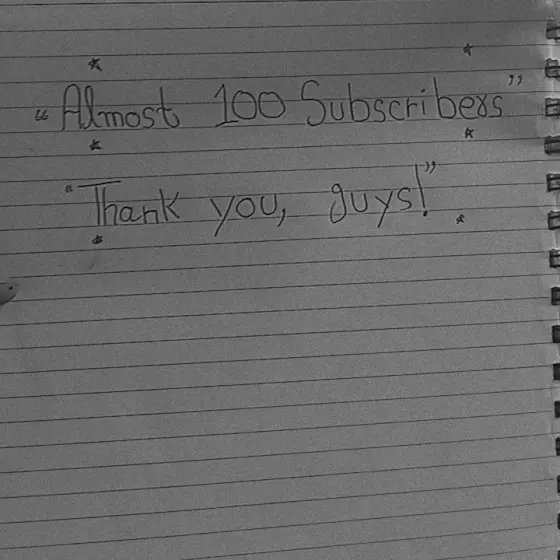 “Almost 100 Subscribers”
“Thank you, guys!”